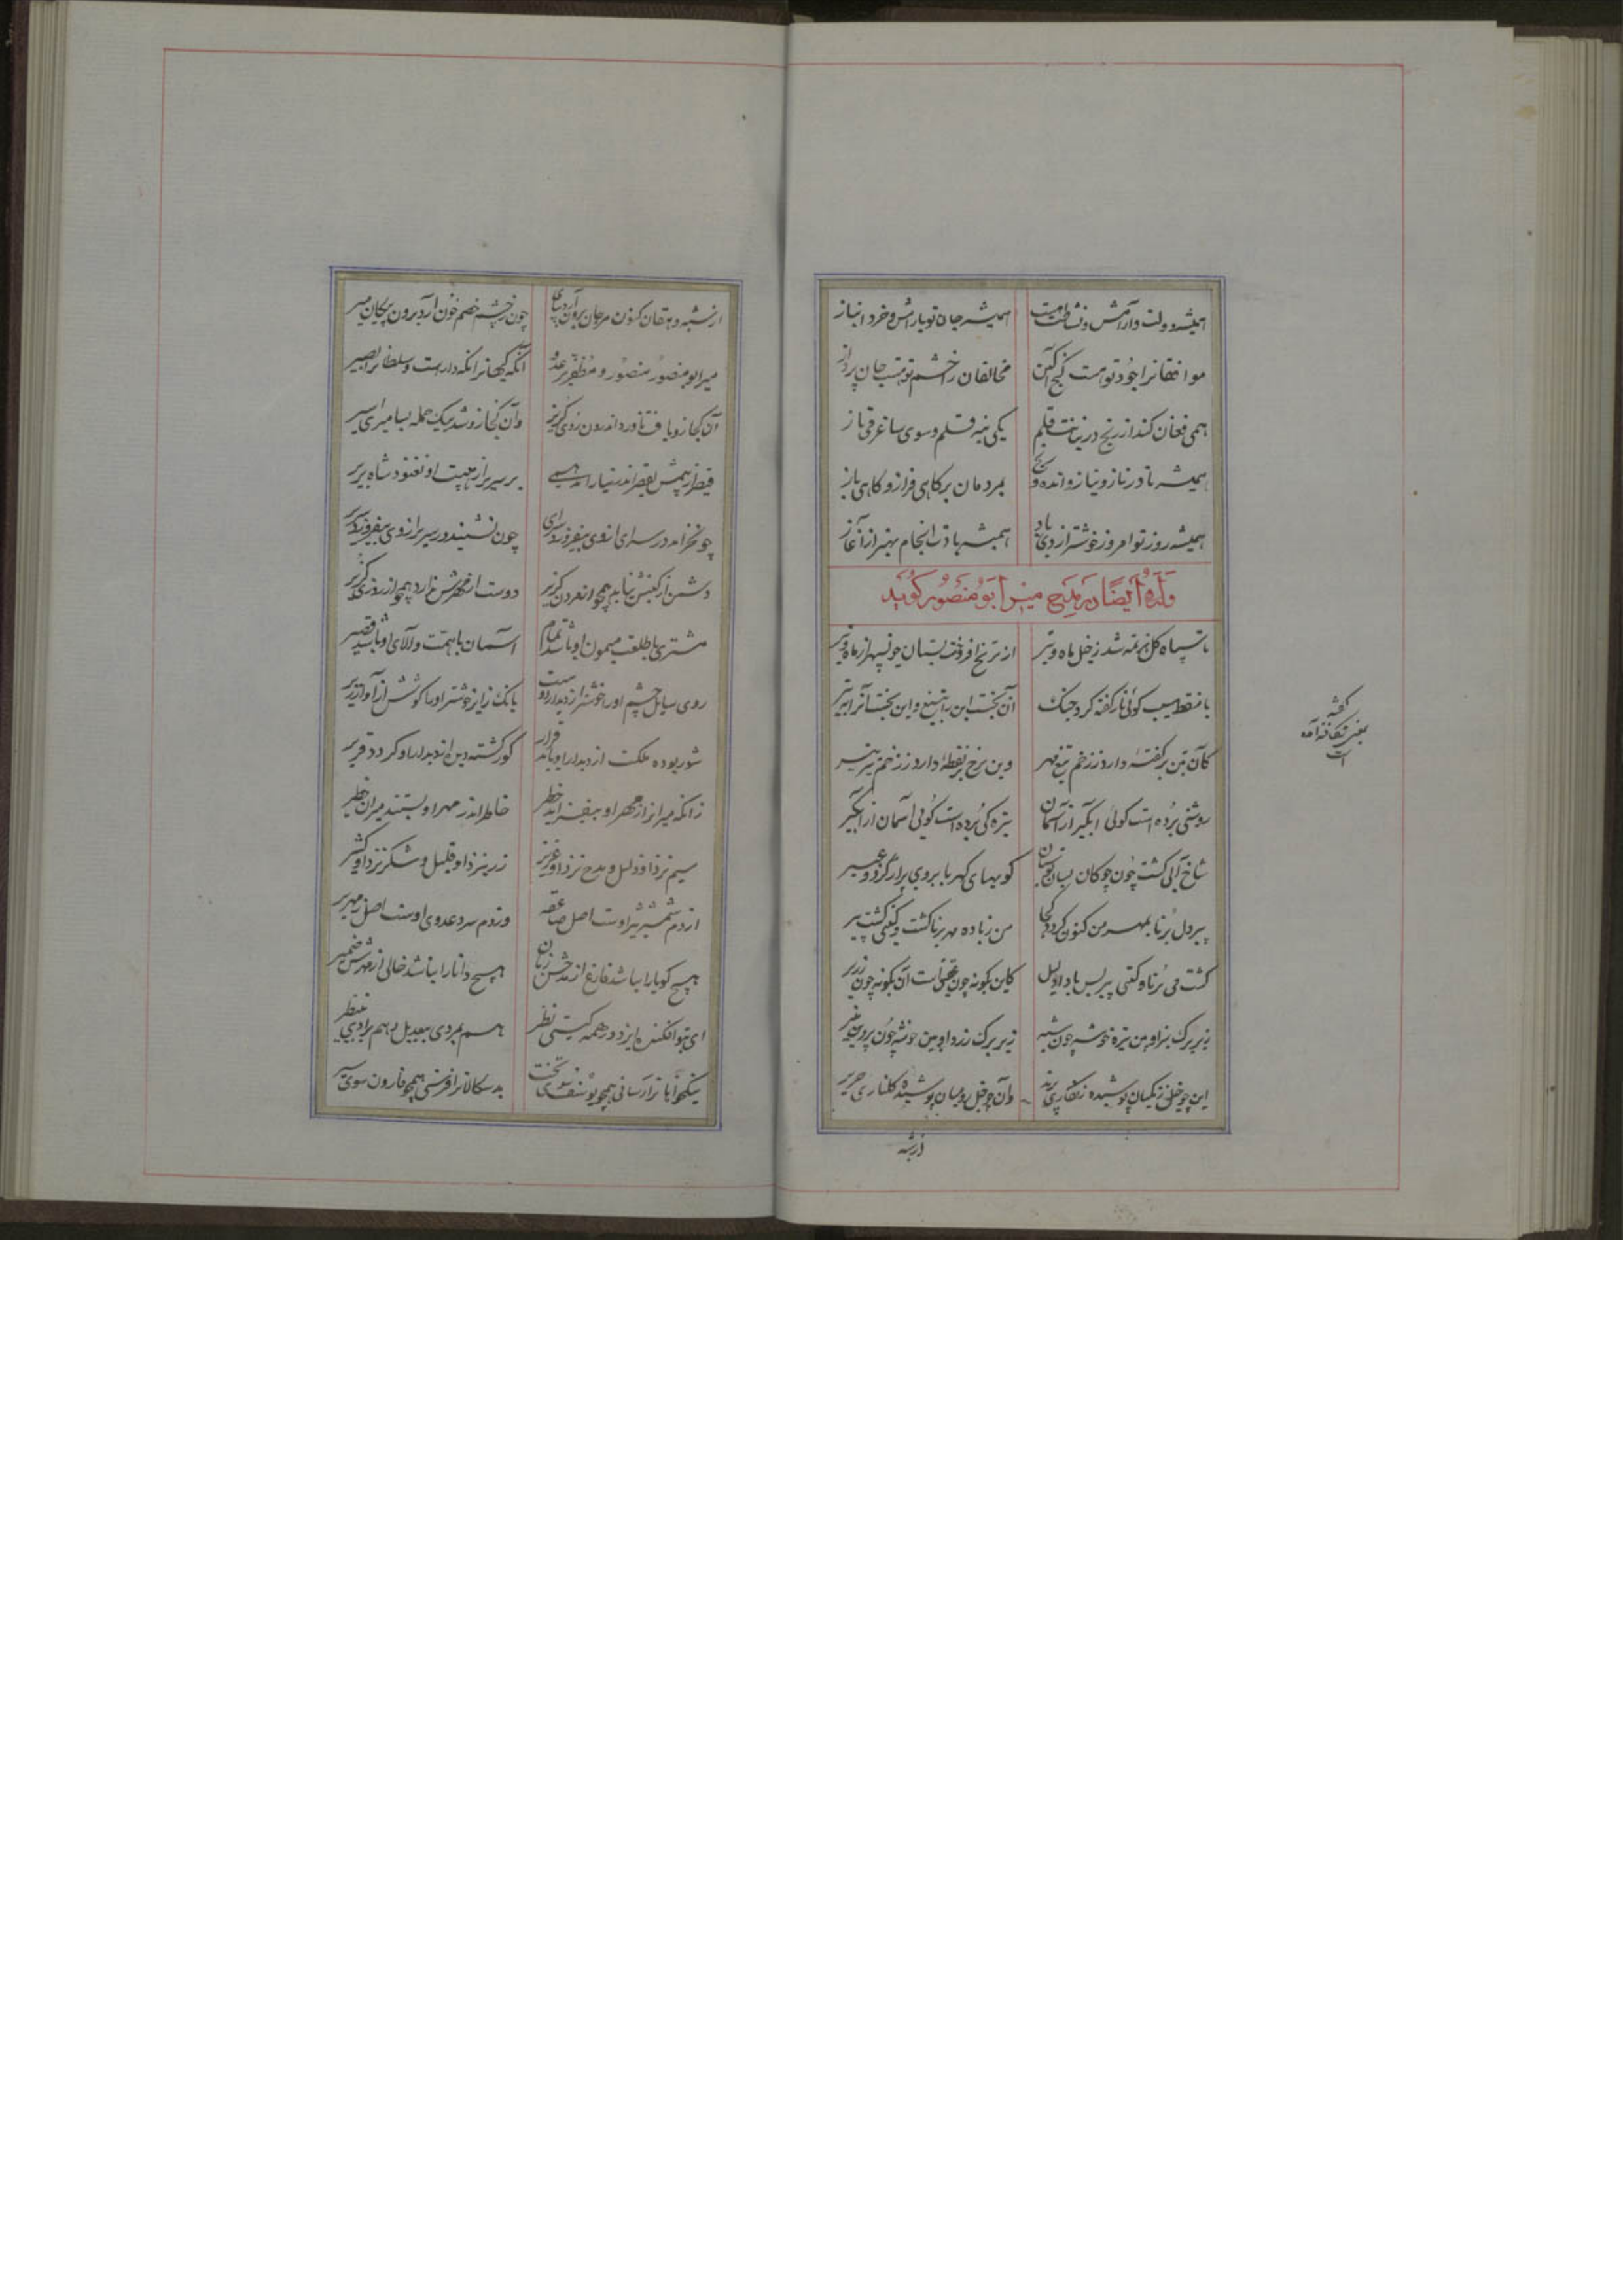 همیشه دولت و آرامش و نشاطت جفت همیشه جان تو با رامش و خرد انباز
موافقانرا جود تو هست گنج آکن مخالفان را خشم تو هست جان پرداز
همی فغان کند از رنج در بنانت قلم یکی بنه قلم و سوی ساغر می تاز
همیشه تا در ناز و نیاز و انده و رنج بمردمان بر گاهی فراز و گاهی باز
همیشه روز تو امروز خوشتر از دی باد همیشه بادت انجام بهتر از آغاز
وله ایضا در مدح میر ابومنصور گوید
تا سپاه گل هزیمه شد ز خیل ماه و تیر از ترنج افروخت بستان چون سپهر از ماه و تیر
با منقط سیب گوئی نار کفته کرد جنک آن بخست این را بتیغ و این بخست آنرا بتیر
کآن بتن بر کفته دارد ز زخم تیغ مهر وین برخ بر نقطه دارد ز زخم تیر تیر
روشنی برده است گوئی آبگیر از آسمان تیره گی برده است گوئی آسمان از آبگیر
شاخ آبی گشت چون چوگان بسان بوستان گویهای کهربا بروی پر از گرد و عبیر
پیر دل برنا بمهر من کنون گردد کجا من ز باده مهر برنا گشت و گیتی گشت پیر
گشت می برنا و گیتی پیر بس باد دلیل کاین بگونه چون عقیق است آن بگونه چون زریر
زیر برگ سبز او بین تیره خوشه چون شبه زیر برگ زرد او بین خوشه چون پروین منیر
این چو خیل زنگیان پوشیده زنگاری پرند وان چو خیل رومیان پوشیده گلناری حریر
از شبه
کفته
بمعنی شکافته آمده
است
از شبه دهقان کنون مرجان برون آرد بپای چون ز چشم خصم خون آرد برون پیکان میر
میر ابومنصور منصور و مظفر بر عدو آنکه گیهانرا نگه دار است و سلطانرا نصیر
آن کجا زو یافت ناورد اندرون روی گریز وآن کجا زو شد بیک حمله بسا میری اسیر
قیصر از بیمش بقصر اندر نیارامد همی بر سریر از هیبت او نغنود شاه سریر
چو نخرامد در سرای از وی بیفروزد سرای چون نشیند در سریر از وی بیفروزد سریر
دشمن از کینش نیابد همچو از مردن گریز دوست از مهرش ندارد همچو از روزی گزیر
مشتری با طلعت میمون او باشد تمام آسمان با همت والای او باشد قصیر
روی سایل چشم او را خوشتر از دیدار دوست بانک زایر خوشتر او را گوشش از آواز زیر
شوریده مملکت از دیدار او یابد قرار کور گشته دیده از دیدار او گردد قریر
زانکه میرانرا ز مهر او بیفزاید خطر خاطر اندر مهر او بستند میران خطیر
سیم نزد او ذلیل و مدح نزد او عزیز زر بنزد او قلیل و شکر نزد او کثیر
از دم شمشیر تیز اوست اصل صاعقه وز دم سرد عدوی اوست اصل زمهریر
هیچ گویا را نباشد فارغ از مدحش زبان هیچ دانا را نباشد خالی از مهرش ضمیر
ای بتو افکنده ایزد در همه گیتی نظر هم بمردی بی بدیل و هم برادی بی نظیر
نیکخواهانرا رسانی همچو یوسف سوی تخت بدسگالانرا فرستی همچو قارون سوی تیر